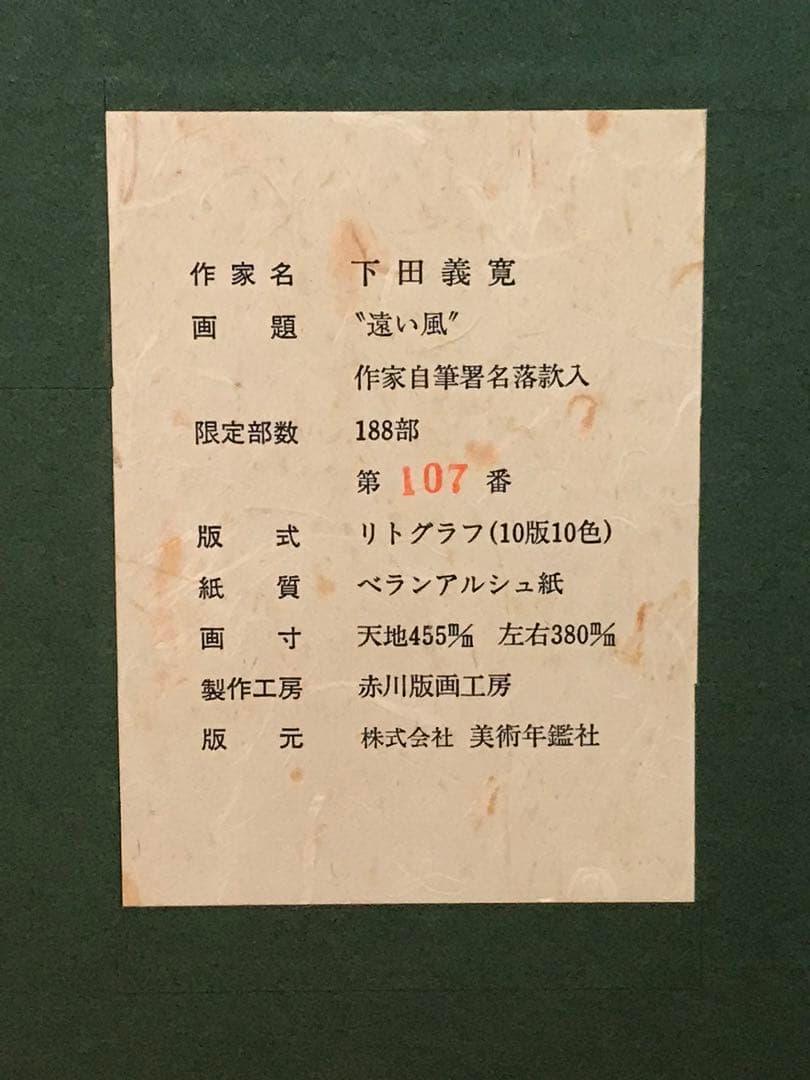 作家名 下田義寛
画題 〝遠い風〟
作家自筆署名落款入
限定部数 188部
第 107 番
版式 リトグラフ(10版10色)
紙質 ベランアルシュ紙
画寸 天地455㎜ 左右380㎜
製作工房 赤川版画工房
版元 株式会社 美術年鑑社